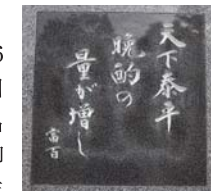 天下泰平
晩酌の
量が増し
富百